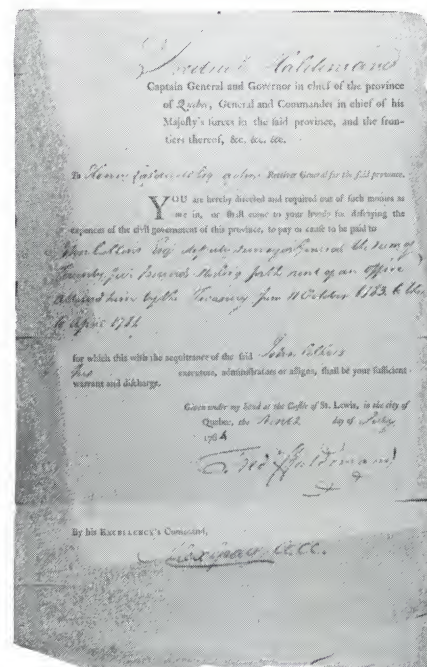 Frederick Haldimand
Captain General and Governor in chief of the province
of Quebec, General and Commander in chief of his
Majeſty's forces in the ſaid province, and the fron-
tiers thereof, &c. &c. &c.
To Henry Caldwell Esq. acting Receiver General for the ſaid province.
YOU are hereby directed and required out of ſuch monies as
are in, or ſhall come to your hands for defraying the
expences of the civil government of this province, to pay or cauſe to be paid to
John Collins Esq. deputy Surveyor General the sum of
Twenty five Pounds Sterling for the rent of an Office
allowed him by the Treasury from 11 October 1783 to the
10 April 1784
for which this with the acquittance of the ſaid John Collins
his executors, adminiſtrators or aſſigns, ſhall be your ſufficient
warrant and diſcharge.
Given under my hand at the Caſtle of St. Lewis, in the city of
Quebec, the day of July
1784
Fred Haldimand
By his EXCELLENCY's Command,